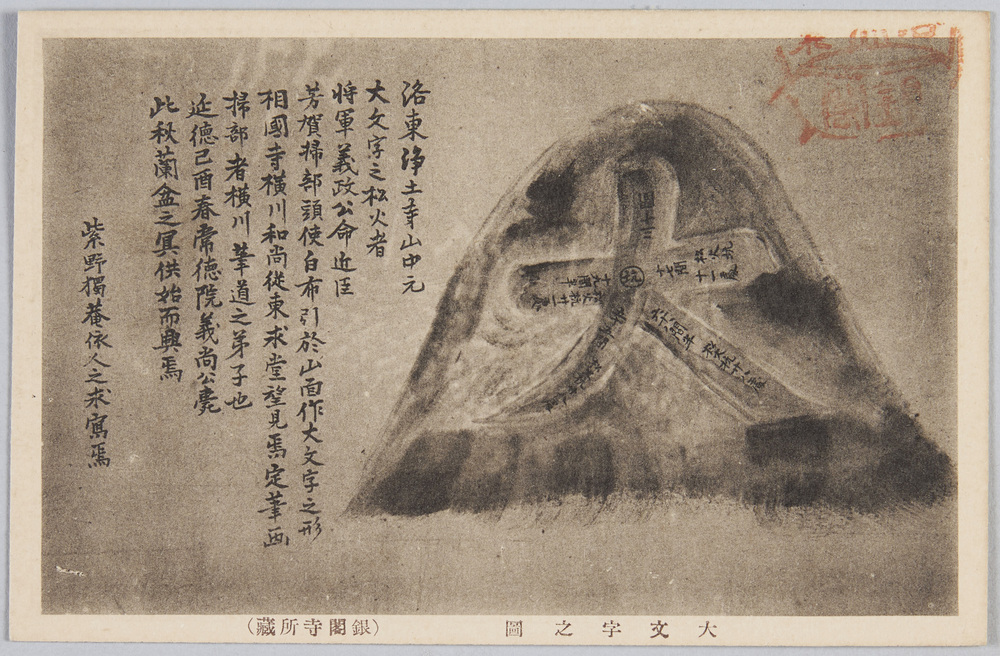 洛東浄土寺山中元
大文字之松火者
将軍義政公命近臣
芳賀掃部頭使白布引於山面作大文字之形
相國寺横川和尚従東求堂望見焉定筆画
掃部者横川筆道之弟子也
延徳己酉春常徳院義尚公薨
此秋蘭盆之冥供始而興焉
紫野獨菴依人之求寫焉
大文字之圖
(銀閣寺所藏)